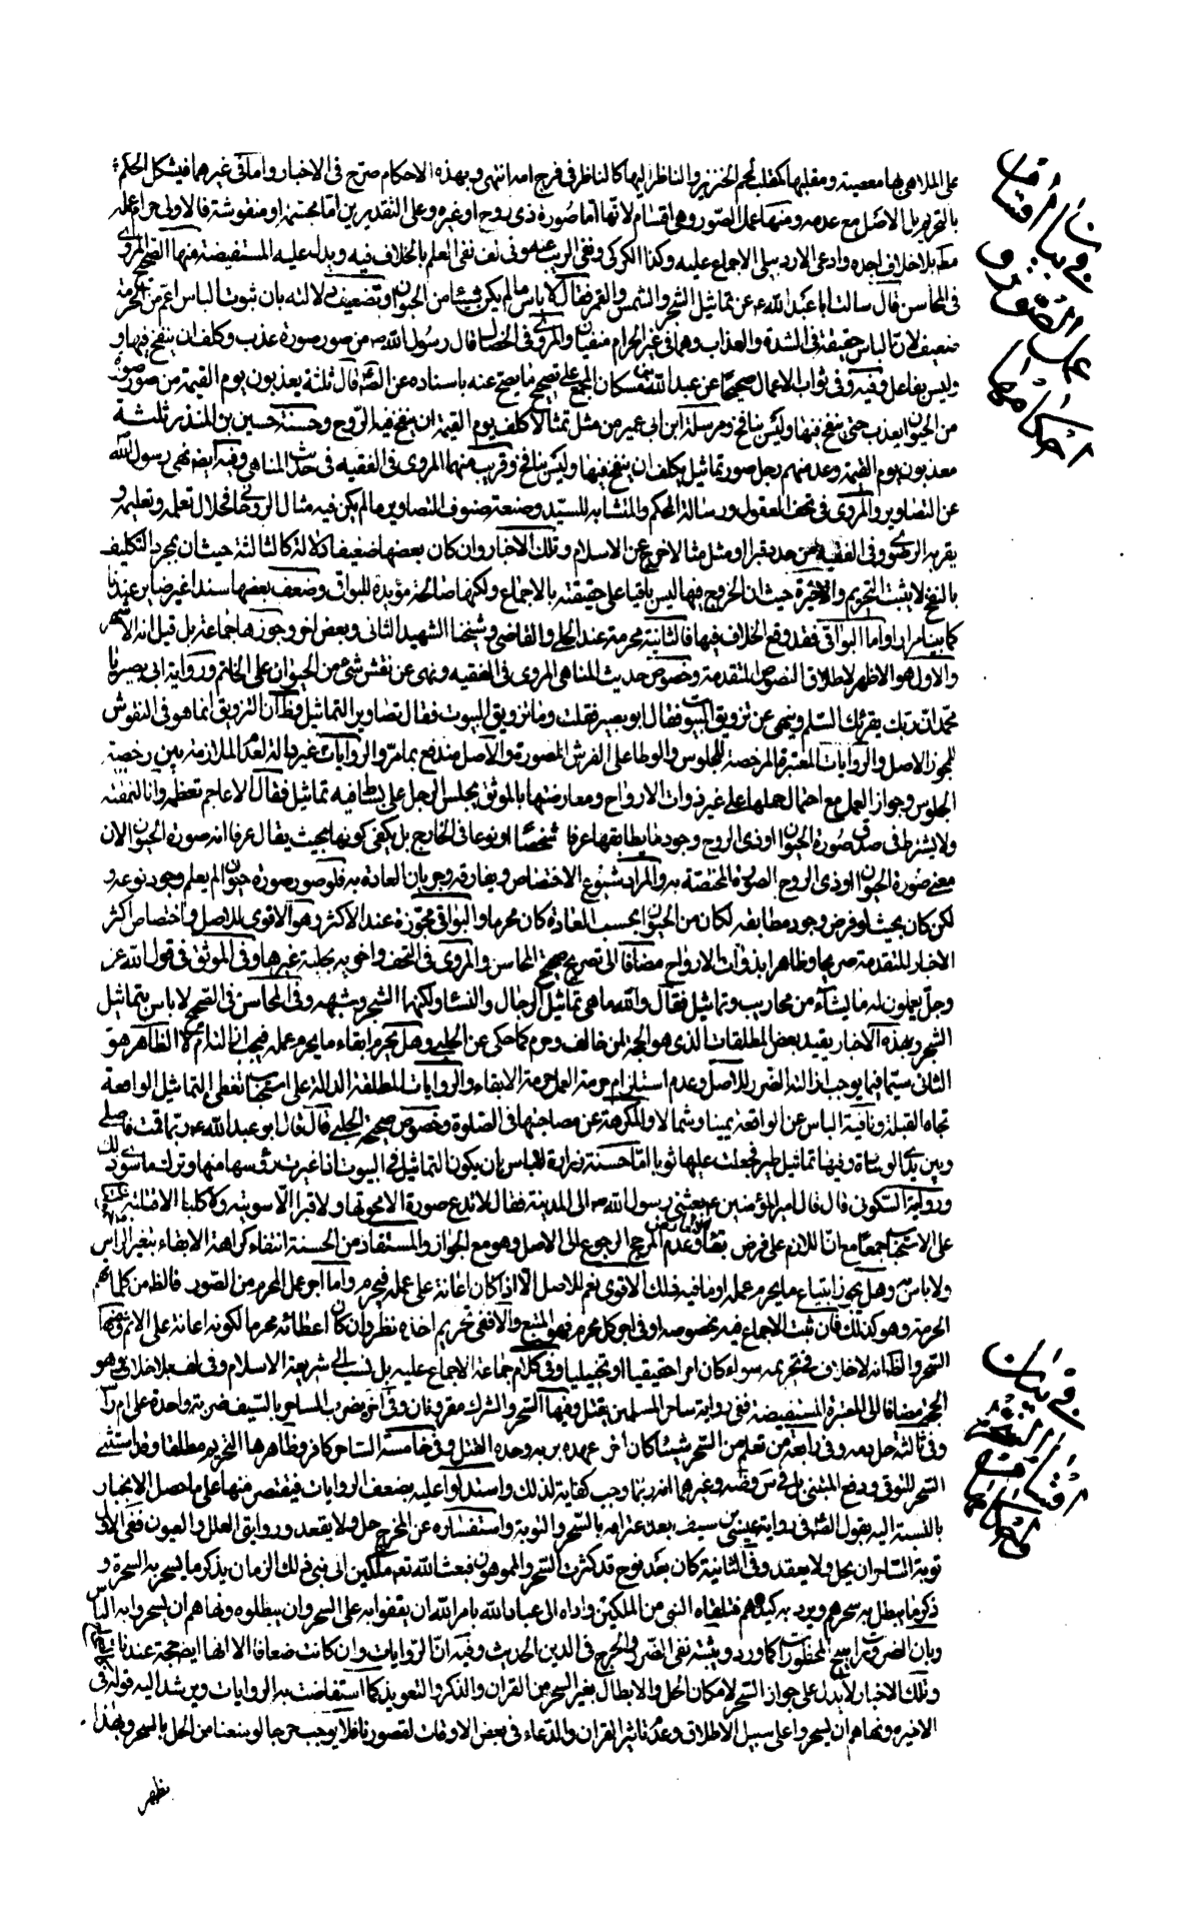 على الملاهى بها معصية ومقلبها كمقلب لحم الخنزير والناظر اليها كالناظر فى فرج امه انتهى وبهذه الاحكام صرّح فى الاخبار واما فى غيرهما فيشكل الحكم
بالتحريم بل الاصل مع عدمه ومنها عمل الصّور وهى اقسام لانّها اما صورة ذى روح او غيره وعلى التقديرين اما مجسّمة او منقوشة فالاولى حرام عمله
بلا خلاف اجده وادعى الاردبيلى الاجماع عليه وكذا الكركى ونفى الريب عنه وفى نفى العلم بالخلاف فيه ويدل عليه المستفيضة منها الصّحيح المروى
فى المحاسن قال سالت ابا عبد الله ع عن تماثيل الشجر والشمس والقمر فقال لا باس ما لم يكن شيئا من الحيوان وتضعيف دلالته بان ثبوت الباس اعمّ من الحرمة
ضعيف لان الباس حقيقة فى الشدة والعذاب وهما فى غير الحرام منفيان والمروى فى الخصال قال رسول الله ص من صور صورة عذب وكلف ان ينفخ فيها و
وليس بفاعل وفيه وفى ثواب الاعمال صحيحا عن عبد الله بن مسكان المجمع على تصحيح ما يصحّ عنه باسناده عن الصّ قال ثلثة يعذبون يوم القيمة من صور صورة
من الحيوان يعذب حتى ينفخ فيها وليس بنافخ ومرسلة ابن ابى عمير من مثل تمثالا كلف يوم القيمة ان ينفخ فيه الرّوح وحسنة حسين بن المنذر ثلثة
معذبون يوم القيمة وعدّ منهم رجل صور تماثيل يكلف ان ينفخ فيها وليس بنافخ وقريب منهما المروى فى الفقيه فى حديث المناهى وفيه ايضا نهى رسول الله
عن التصاوير والمروى فى تحف العقول ورسالة المحكم والمتشابه للسيّد وصنعة صنوف التصاوير ما لم يكن فيه مثال الروحانى فحلال تعلمه وتعليمه و
يقربه الرضوى وفى الفقيه من جدد قبرا او مثل مثالا خرج عن الاسلام وتلك الاخبار وان كان بعضها ضعيفا دلالة كالثالثة حيث ان مجرد التكليف
بالنفخ لا يثبت التحريم والاخيرة حيث ان الخروج فيها ليس باقيا على حقيقته بالاجماع ولكنها صالحة مؤيدة للبواقى وضعف بعضها سندا غير ضاير عندنا
كما بينا مرارا واما البواقى فقد وقع الخلاف فيها فالثانية محرمة عند الحلى والقاضى وشيخنا الشهيد الثانى وبعض اخر وجوزها جماعة بل قيل انه الاشهر
والاول هو الاظهر لاطلاق النصوص المتقدمة وخصوص حديث المناهى المروى فى الفقيه ونهى عن نقش شئ من الحيوان على الخاتم ورواية ابى بصير يا
محمد ان ربك يقرئك السلم وينهى عن تزويق البيوت فقال ابو بصير فقلت وما تزويق البيوت فقال تصاوير التماثيل وظ ان التزويق انما هو فى النقوش
للمجوز الاصل والروايات المعتبرة المرخصة للجلوس والوطا على الفرش المصورة والاصل مندفع بما مرّ والروايات غير دالة لعدم الملازمة بين رخصة
الجلوس وجواز العمل مع احتمال حملها على غير ذوات الارواح ومعارضتها بالموثق يجلس الرجل على بساط فيه تماثيل فقال الاعاجم تعظمه وانا لنمقته
ولا يشترط فى صدق صورة الحيوان او ذى الروح وجود ما يطابقها عرفا شخصا او نوعا فى الخارج بل يكفى كونها بحيث يقال عرفا انه صورة الحيوان لان
معنى صورة الحيوان او ذى الروح الصورة المختصة به والمراد شيوع الاختصاص وتعارفه وجريان العادة به فلو صور صورة حيوان لم يعلم وجود نوعه و
لكن كان بحيث لو فرض وجود مطابقه لكان من الحيوان بحسب العادة كان محرما والبواقى مجوّزة عند الاكثر وهو الاقوى للاصل واختصاص اكثر
الاخبار المتقدمة صريحا وظاهرا بذوات الارواح مضافا الى تصريح صحيح المحاسن والمروى فى التحف واخويه بحلية غيرها وفى الموثق فى قول الله عز
وجل يعملون له ما يشآء من محاريب وتماثيل فقال والله ما هى تماثيل الرجال والنساء ولكنها الشجر وشبهه وفى المحاسن فى الصّحيح لا باس بتماثيل
الشجر وبهذه الاخبار يقيد بعض المطلقات الذى هو الحجة لمن خالف وحرم كما حكى عن الحلبى وهل يحرم ابقاء ما يحرم عمله فيجب اتلافه ام لا الظاهر هو
الثانى سيّما فيما يوجب اذا الته الضرر للاصل وعدم استلزام حرمة العمل حرمة الابقاء والروايات المطلقة الدالة على استحباب تغطى التماثيل الواقعة
تجاه القبلة ونافية الباس عن الواقعة يمينا وشمالا والمكرهة عن مصاحبتها فى الصّلوة وخصوص صحيحة الحلبى قال قال ابو عبد الله ع ربّما قمت فاصلى
وبين يدى الوسادة وفيها تماثيل طير فجعلت عليها ثوبا امّا حسنة زرارة لا باس بان يكون التماثيل فى البيوت اذا غيرت رؤسها منها وترك ما سوى ذلك
ورواية السّكونى قال قال امير المؤمنين ع بعثنى رسول الله ص الى المدينة فقال لا تدع صورة الا محوتها ولا قبرا الّا سويته ولا كلبا الا قتلته
على الاستحباب جمعا مع انّ اللازم على فرض تعارض وعدم المرجح الرجوع الى الاصل وهو مع الجواز والمستفاد من الحسنة انتفاء كراهة الابقاء بتغير الراس
ولا باس به وهل يجوز ابتياع ما يحرم عمله او مافيه ذلك الاقوى نعم للاصل الّا اذا كان اعانة على عمله فيحرم واما اجر عمل المحرم من الصّور فالظ من كلماتهم
الحرمة وهو كذلك فان ثبت الاجماع فيه بخصوصه او فى اجر كل محرم فهو المتبع والا ففى تحريم اخذه نظر وان كان اعطائه محرما لكونه اعانة على الاثم ومنها
السّحر والظ انه لا خلاف فى تحريمه سواء كان امرا حقيقيا او تخييليا وفى كلام جماعة الاجماع عليه بل نسب الى شريعة الاسلام وفى بلا خلاف وهو
الحجة مضافا الى المعتبرة المستفيضة ففى رواية ساحر المسلمين يقتل وفيها السّحر والشرك مقرونان وفى اخرى يضرب السّاحر بالسّيف ضربة واحدة على ام راسه
وفى ثالثة حل دمه وفى رابعة من تعلم من السّحر شيئا كان اخر عهده بربه وحدّه القتل وفى خامسة السّاحر كافر وظاهرها التحريم مطلقا وقد استثنى
السّحر للتوقى ودفع المتنبى بل فى س وضه وغيرهما انه ربّما وجب كفاية لذلك واستدلوا عليه بضعف الروايات فيقتصر منها على ما حصل الانجبار
بالنسبة اليه بقول الصّ فى رواية عيسى بن سيف بعد اعترافه بالسّحر والتوبة واستفساره عن المخرج حل ولا تعقد وروايتى العلل والعيون ففى الاولى
توبة السّاحر ان يحل ولا يعقد وفى الثانية كان بعد نوح قد كثرت السّحرة والمموهون فبعث الله تع ملكين الى نبى ذلك الزمان بذكر ما يسحر به السّحرة و
ذكر ما يبطل به سحرهم ويرد به كيدهم فتلقاه النبى من الملكين واداه الى عباد الله بامر الله ان يقفوا به على السّحر وان يبطلوه ونهاهم ان يسحروا به الناس
وبان الضرورات تبيح المحظورات كما ورد ويثبته نفى الضّرر والحرج فى الدين الحديث وفيه انّ الروايات وان كانت ضعافا الا انها ايضا حجة عندنا
وتلك الاخبار لا تدل على جواز السّحر لامكان الحل والابطال بغير السّحر من القران والذكر والتعويذ كما استفاضت به الروايات ويرشد اليه قوله فى
الاخيرة ونهاهم ان يسحروا على سبيل الاطلاق وعدم تاثير القران والدعاء فى بعض الاوقات لقصورنا فلا يوجب حرجا لو منعنا من الحل بالسحر وبهذا
يظهر
فى بيان اقسام
عمل الصّور و
احكامها
فى بيان
اقسام السّحر
واحكامها